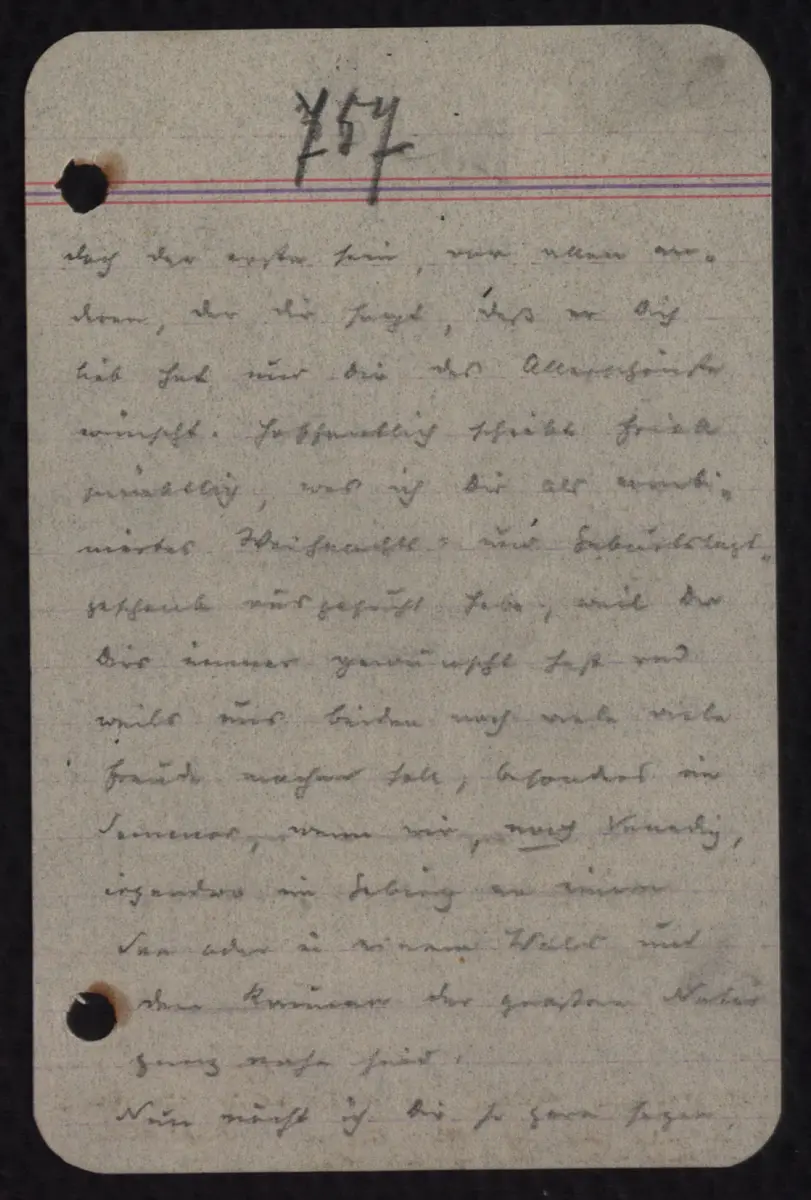 757
doch der erste sein, vor allen an-
deren, der dir sagt, daß er Dich
lieb hat und Dir das Allerschönste
wünscht. Hoffentlich schickt Frieda
pünktlich, was ich Dir als kombi-
niertes Weihnachts- und Geburtstags-
geschenk ausgesucht habe, weil Du
Dirs immer gewünscht hast und
weils uns beiden noch viele viele
Freude machen soll, besonders im
Sommer, wenn wir, nach Venedig,
irgendwo im Gebirg an einem
See oder in einem Wald und
den der großen Natur
ganz nahe sind.
Nun möcht ich Dir so gern sagen,